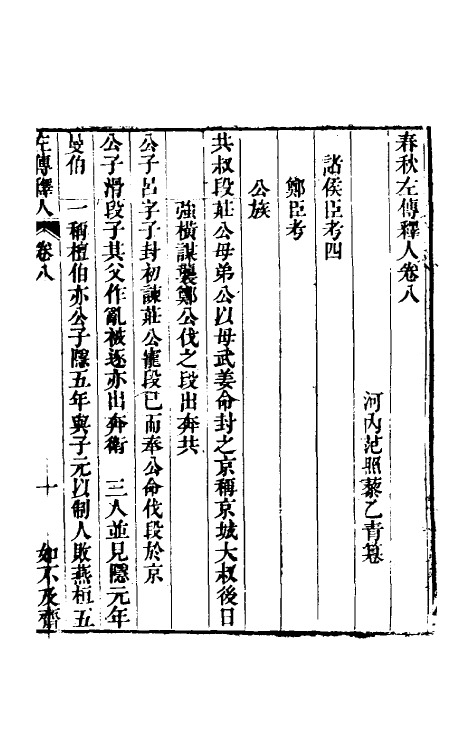 春秋左傳釋人卷八
河內范照藜乙青纂
諸侯臣考四
鄭臣考
公族
共叔段莊公母弟公以母武姜命封之京稱京城大叔後日
強橫謀襲鄭公伐之段出奔共
公子呂字子封初諫莊公寵段已而奉公命伐段於京
公子滑段子其父作亂被逐亦出奔衛 三人並見隱元年
曼伯 一稱檀伯亦公子隱五年與子元以制人敗燕桓五
左傳釋人 卷八 十 如不及齋